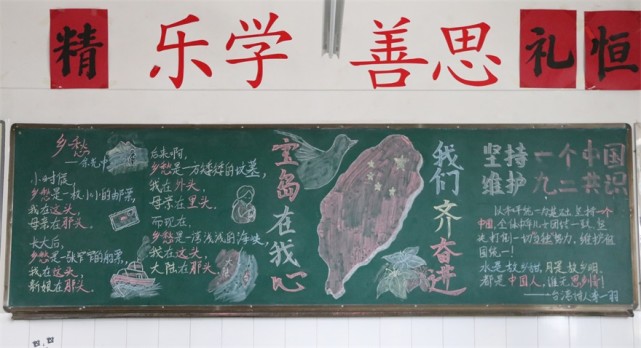 精
乐学
善思
礼
恒
乡愁
——余光中
小时候,
乡愁是一枚小小的邮票,
我在这头,
母亲在那头。
长大后,
乡愁是一张窄窄的船票,
我在这头,
新娘在那头。
后来啊,
乡愁是一方矮矮的坟墓,
我在外头,
母亲在里头。
而现在,
乡愁是一湾浅浅的海峡,
我在这头,
大陆在那头。
宝岛在我心
我们齐奋进
坚持一个中国
维护九二共识
一个
中国,
国统一!
水是故乡甜,月是故乡明。
都是中国人,